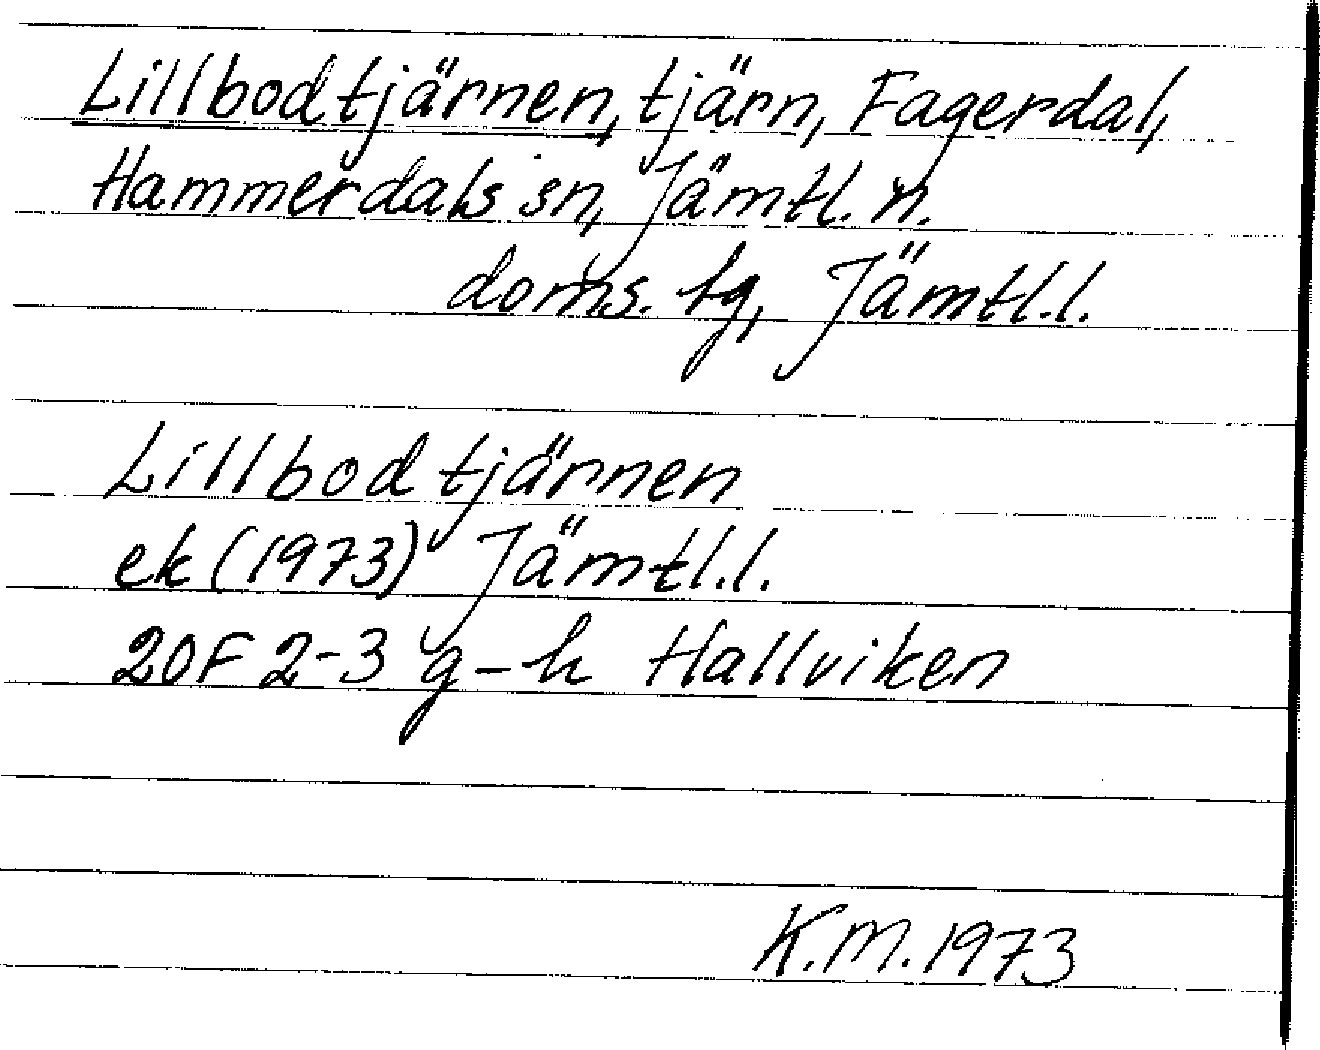 Lillbodtjärnen, tjärn, Fagerdal,
Hammerdals sn, Jämtl. n.
doms. tg, Jämtl.l.
Lillbodtjärnen
ek (1973) Jämtl.l.
20F 2-3 g-h Hallviken
K.M. 1973